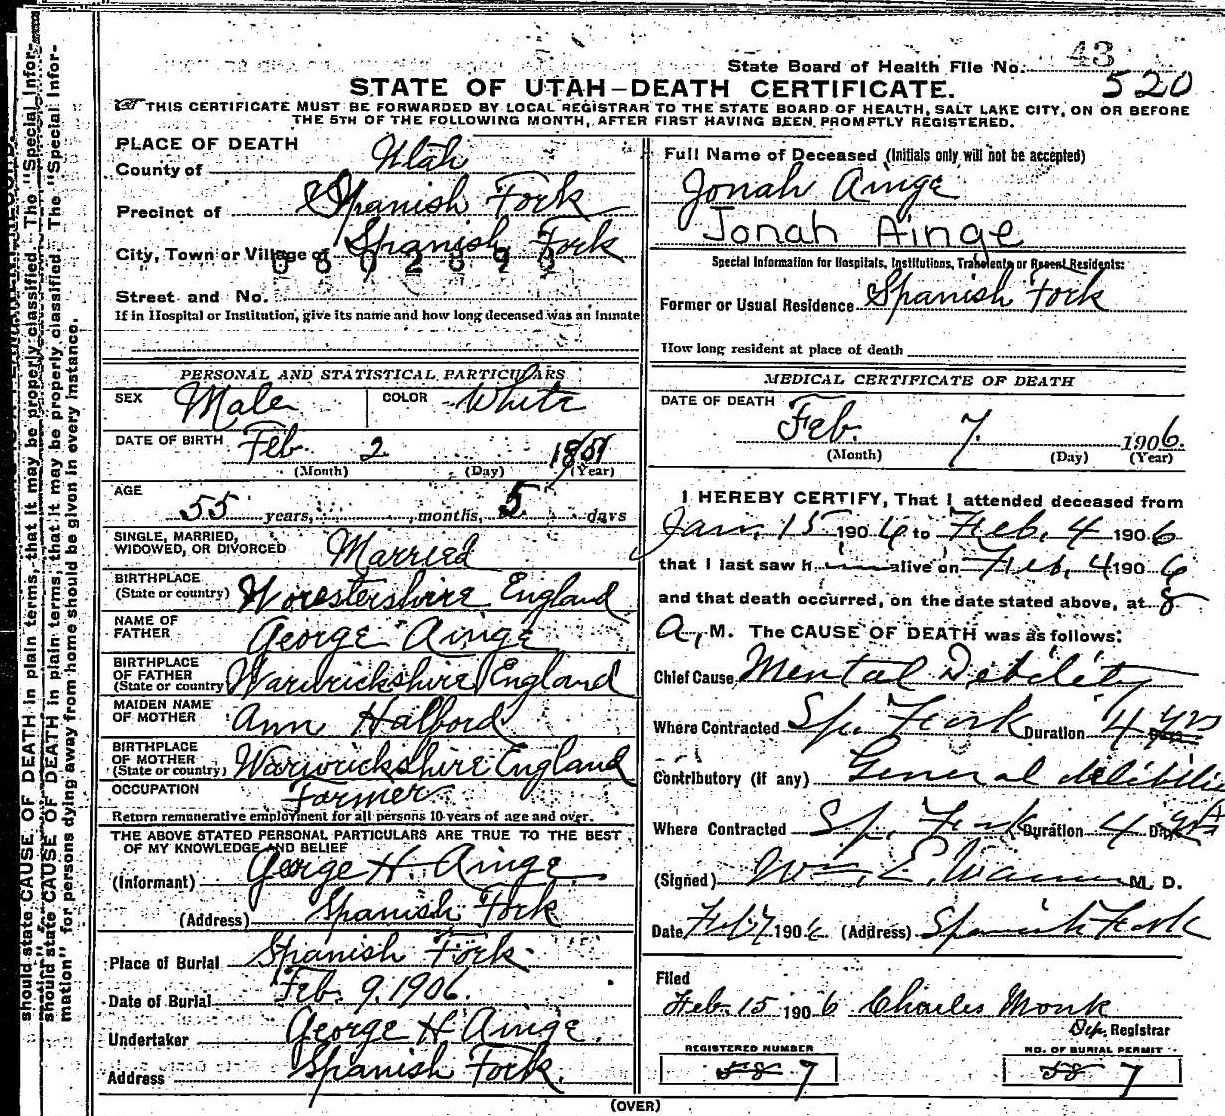 State Board of Health File No. 43
520
STATE OF UTAH—DEATH CERTIFICATE.
THIS CERTIFICATE MUST BE FORWARDED BY LOCAL REGISTRAR TO THE STATE BOARD OF HEALTH, SALT LAKE CITY, ON OR BEFORE
THE 5TH OF THE FOLLOWING MONTH, AFTER FIRST HAVING BEEN PROMPTLY REGISTERED.
PLACE OF DEATH
County of Utah
Precinct of Spanish Fork
City, Town or Village of Spanish Fork
0602893
Street and No.
If in Hospital or Institution, give its name and how long deceased was an inmate
PERSONAL AND STATISTICAL PARTICULARS
SEX Male COLOR White
DATE OF BIRTH Feb. 2 1851
(Month) (Day) (Year)
AGE
55 years, months, 5 days
SINGLE, MARRIED,
WIDOWED, OR DIVORCED Married
BIRTHPLACE
(State or country) Worestershire England
NAME OF
FATHER George Ainge
BIRTHPLACE
OF FATHER
(State or country) Warwrickshire England
MAIDEN NAME
OF MOTHER Ann Halford
BIRTHPLACE
OF MOTHER
(State or country) Warwrickshire England
OCCUPATION Farmer
Return remunerative employment for all persons 10 years of age and over.
THE ABOVE STATED PERSONAL PARTICULARS ARE TRUE TO THE BEST
OF MY KNOWLEDGE AND BELIEF
(Informant) George H. Ainge.
(Address) Spanish Fork
Place of Burial Spanish Fork
Date of Burial Feb. 9. 1906.
Undertaker George H Ainge.
Address Spanish Fork.
Full Name of Deceased (Initials only will not be accepted)
Jonah Ainge
Jonah Ainge
Special Information for Hospitals, Institutions, Transients or Recent Residents:
Former or Usual Residence Spanish Fork
How long resident at place of death
MEDICAL CERTIFICATE OF DEATH
DATE OF DEATH
Feb. 7. 1906.
(Month) (Day) (Year)
I HEREBY CERTIFY, That I attended deceased from
Jan. 15 1906 to Feb. 4 1906
that I last saw him alive on Feb. 4 1906
and that death occurred, on the date stated above, at 8
A, M. The CAUSE OF DEATH was as follows:
Chief Cause Mental Debility
Where Contracted Sp. Fork Duration 4 yrs Days
Contributory (if any) General
Where Contracted Sp. Fork Duration 4 Days
(Signed) Wm. E. M. D.
Date Feb 7 1906 (Address) Spanish Fork
Filed
Feb. 15 1906 Charles Monk
Dep. Registrar
REGISTERED NUMBER
58 7
NO. OF BURIAL PERMIT
58 7
(OVER)
should state CAUSE OF DEATH in plain terms, that it may be properly classified. The "Special Infor-
mation" for persons dying away from home should be given in every instance.